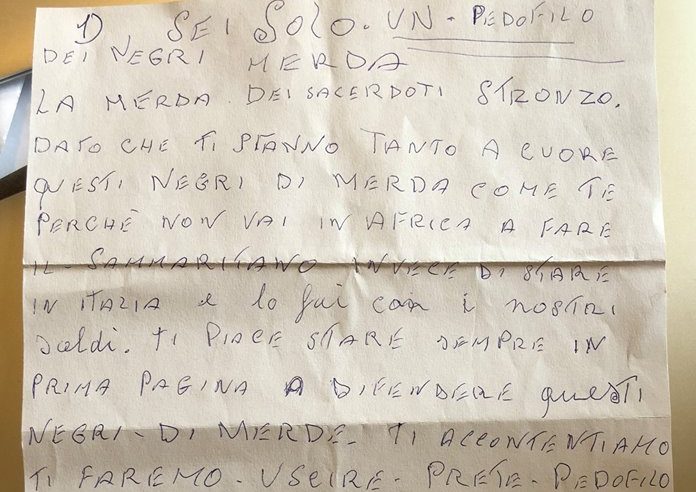 1) SEI SOLO. UN - PEDOFILO
DEI NEGRI MERDA
LA MERDA. DEI SACERDOTI STRONZO.
DATO CHE TI STANNO TANTO A CUORE
QUESTI NEGRI DI MERDA COME TE
PERCHÈ NON VAI IN AFRICA A FARE
IL - SAMMARITANO INVECE DI STARE
IN ITALIA e lo fai con i nostri
soldi. TI PIACE STARE SEMPRE IN
PRIMA PAGINA A DIFENDERE questi
NEGRI - DI MERDE. TI ACCONTENTIAMO
TI FAREMO - USCIRE - PRETE - PEDOFILO